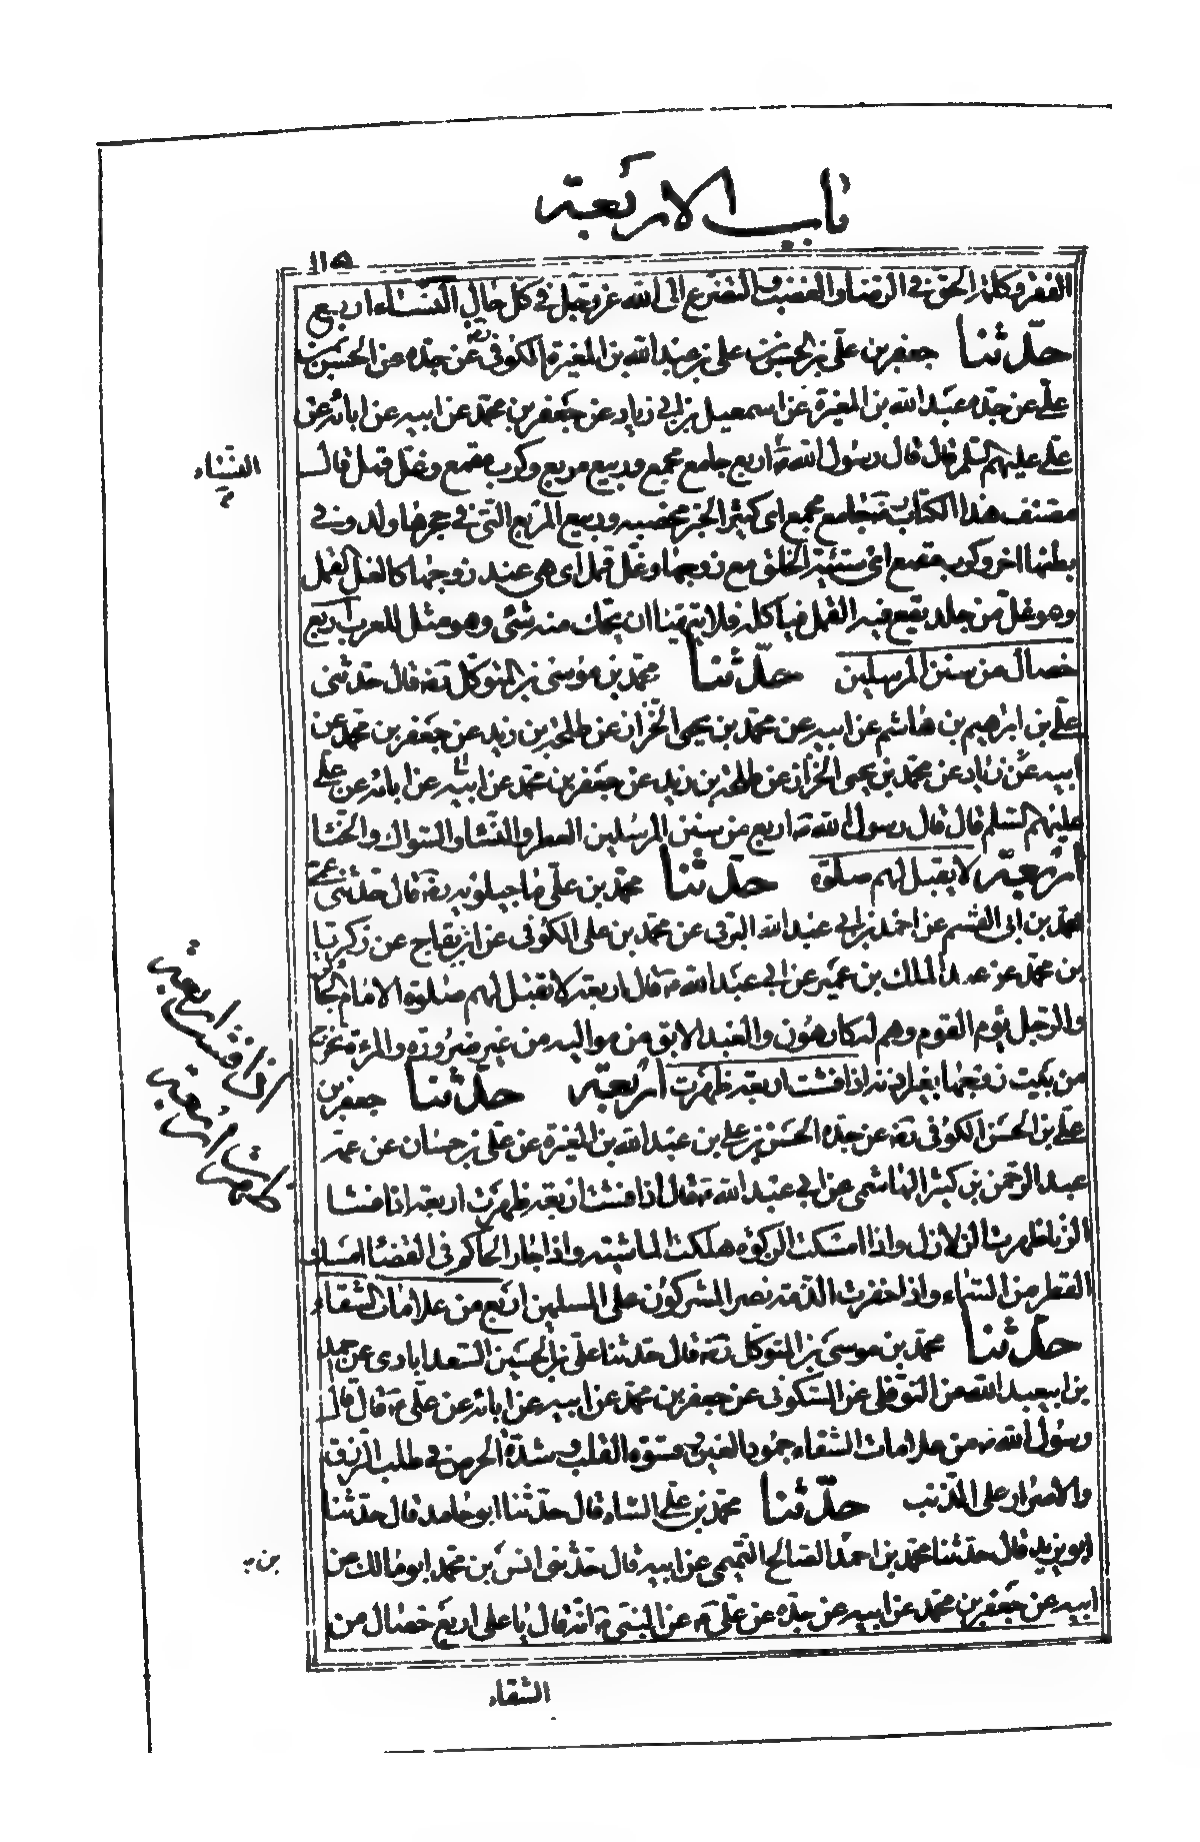 باب الاربعة
١١٥
الفقر وكلمة الحق في الرضا والغضب والتضرع الى الله عز وجل في كل حال النساء اربع
حدثنا جعفر بن علي بن الحسن بن علي بن عبد الله بن المغيرة الكوفي رضه عن جده عن الحسن بن
علي عن جده عبد الله بن المغيرة عن اسمعيل بن ابي زياد عن جعفر بن محمد عن ابيه عن ابائه عن
علي عليهم السلم قال قال رسول الله ص اربع جامع مجمع وربيع مربع وكرب مقمع وغل قمل قال
مصنف هذا الكتاب جامع مجمع اي كثير الخير مخصبه وربيع المربع التي في حجرها ولد وفي
بطنها اخر وكرب مقمع اي سيئة الخلق مع زوجها وغل قمل اي هي عند زوجها كالغل القمل
وهو غل من جلد يقع فيه القمل فياكله فلا يتهيأ ان يحك منه شئ وهو مثل للعرب اربع
خصال من سنن المرسلين حدثنا محمد بن موسى بن المتوكل رضه قال حدثني
علي بن ابراهيم بن هاشم عن ابيه عن محمد بن يحيى الخزان عن طلحة بن زيد عن جعفر بن محمد عن
ابيه عن زياد عن محمد بن يحيى الخزاز عن طلحة بن زيد عن جعفر بن محمد عن ابيه عن ابائه عن علي
عليهم السلم قال قال رسول الله ص اربع من سنن المرسلين العطر والنساء والسواك والحنا
اربعة لا يقبل لهم صلوة حدثنا محمد بن علي ماجيلويه رضه قال حدثني عمي
محمد بن ابي القسم عن احمد بن ابي عبد الله البرقي عن محمد بن علي الكوفي عن ابن بقاح عن زكريا
بن محمد عن عبد الملك بن عمير عن ابي عبد الله ع قال اربعة لا تقبل لهم صلوة الامام الجائر
والرجل يؤم القوم وهم له كارهون والعبد الابق من مواليه من غير ضرورة والمرءة تخرج
من بيت زوجها بغير اذنه اذا فشت اربعة ظهرت اربعة حدثنا جعفر بن
علي بن الحسن الكوفي رضه عن جده الحسن بن علي بن عبد الله بن المغيرة عن علي بن حسان عن عمه
عبد الرحمن بن كثير الهاشمي عن ابي عبد الله ع قال اذا فشت اربعة ظهرت اربعة اذا فشا
الزنا ظهرت الزلازل واذا امسكت الزكوة هلكت الماشية واذا جار الحاكم في القضاء امسك
القطر من السماء واذا خفرت الذمة نصر المشركون على المسلمين اربع من علامات الشقاء
حدثنا محمد بن موسى بن المتوكل رضه قال حدثنا علي بن الحسين السعدابادي عن احمد
بن ابيعبد الله عن النوفلي عن السكوني عن جعفر بن محمد عن ابيه عن ابائه عن علي ع قال قال
رسول الله ص من علامات الشقاء جمود العين وقسوة القلب وشدة الحرص في طلب الرزق
والاصرار على الذنب حدثنا محمد بن علي الشاه قال حدثنا ابو حامد قال حدثنا
ابو يزيد قال حدثنا محمد بن احمد الصالح التميمي عن ابيه قال حدثني انس بن محمد ابو مالك عن
ابيه عن جعفر بن محمد عن ابيه عن جده عن علي ع عن النبي ص انه قال يا علي اربع خصال من
الشقاء
النساء
اذا فشت اربعة
ظهرت اربعة
بن